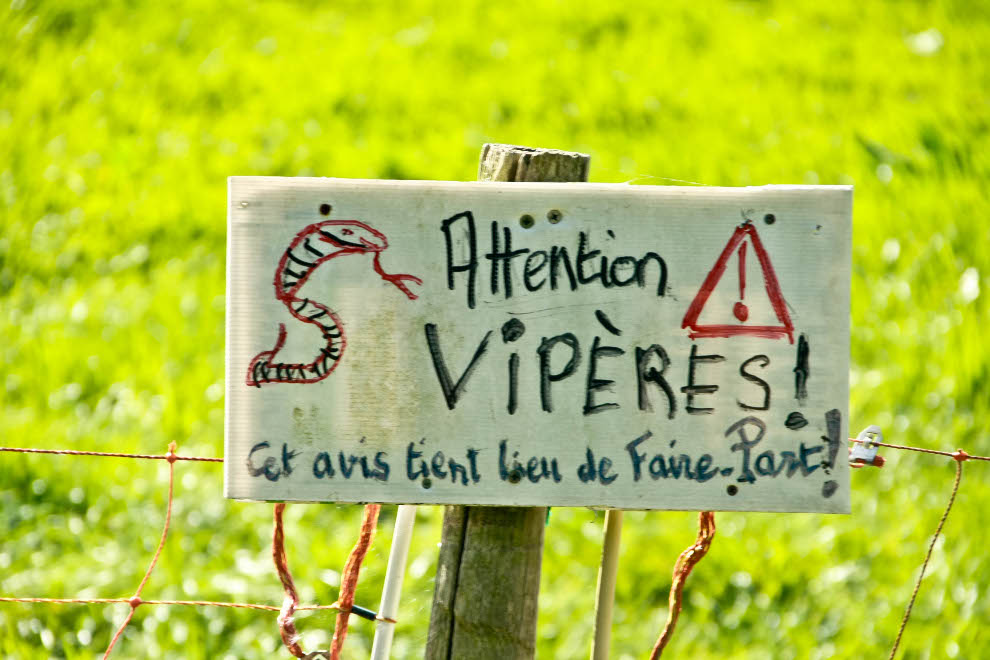 Attention
VIPÈRES!
Cet avis tient lieu de Faire-Part!